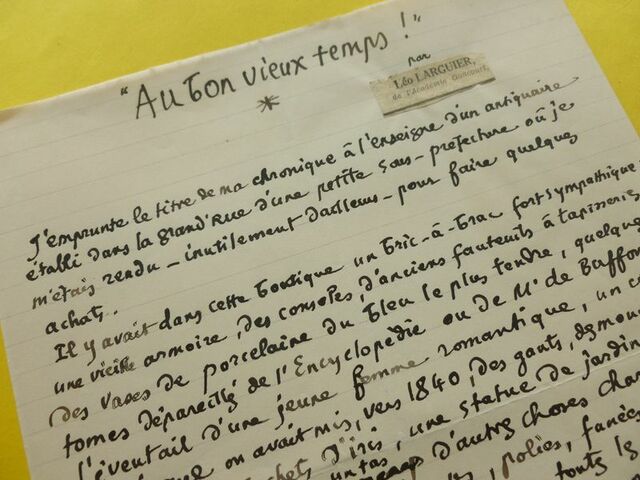 "Au bon vieux temps !"
*
par
Léo LARGUIER,
de l'Académie Goncourt.
J'emprunte le titre de ma chronique à l'enseigne d'un antiquaire
établi dans la grand'rue d'une petite sous-préfecture où je
m'étais rendu - inutilement d'ailleurs - pour faire quelques
achats.
Il y avait dans cette boutique un bric-à-brac fort sympathique
une vieille armoire, des consoles, d'anciens fauteuils à tapisseries
des vases de porcelaine du bleu le plus tendre, quelques
tomes dépareillés de l'Encyclopédie ou de Mr de Buffon
l'éventail d'une jeune femme romantique, un
on avait mis, vers 1840, des gants, des
d'iris, une statue de jardin
un tas, d'autres choses
polies, fanées
toute la